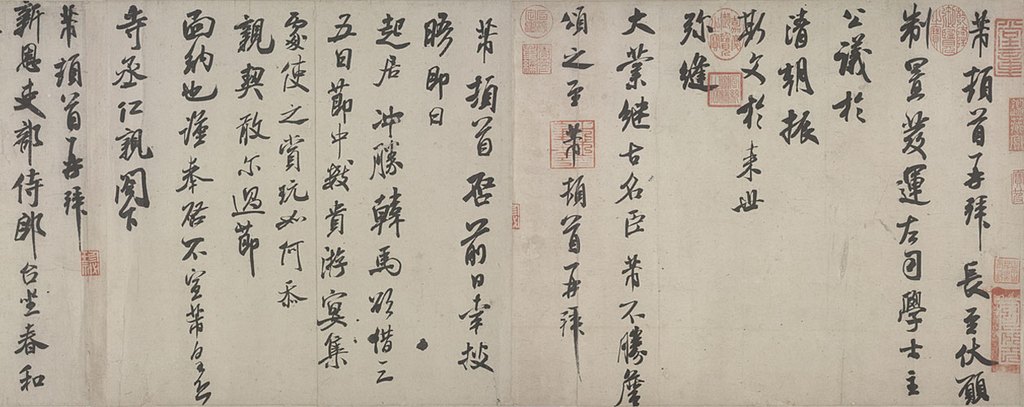 芾頓首再拜 長至伏願
制置發運左司學士主
公議於
清朝振
斯文於来世
弥縫
大業継古名臣芾不勝詹
頌之至芾頓首再拜
芾頓首啓前日幸披
晤即日
起居沖勝韓馬欲借三
五日節中數貴游宴集
處使之賞玩如何忝
親契敢尓過節
面納也謹奉啓不宣芾
寺丞仁親閣下
芾頓首再拜
新恩吏部侍郎台坐春和